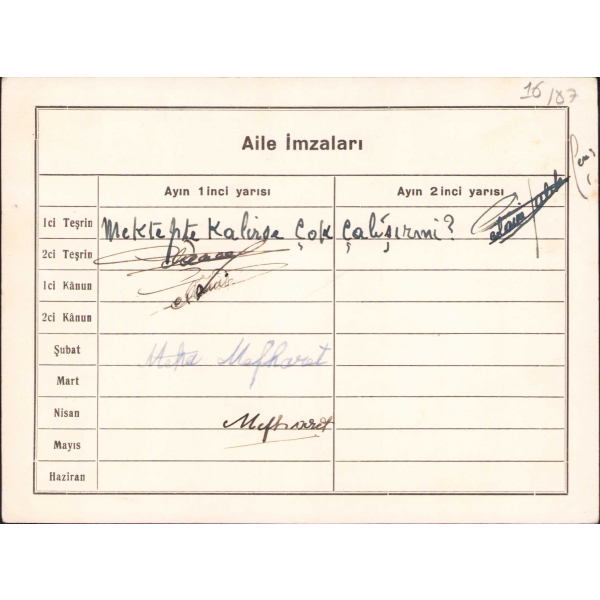 16/87
Aile İmzaları
Ayın 1 inci yarısı Ayın 2 inci yarısı
1ci Teşrin Mektepte Kalirse Çok Çalışırmi?
2ci Teşrin
1ci Kânun
2ci Kânun
Şubat Mefharet
Mart
Nisan Mefharet
Mayıs
Haziran